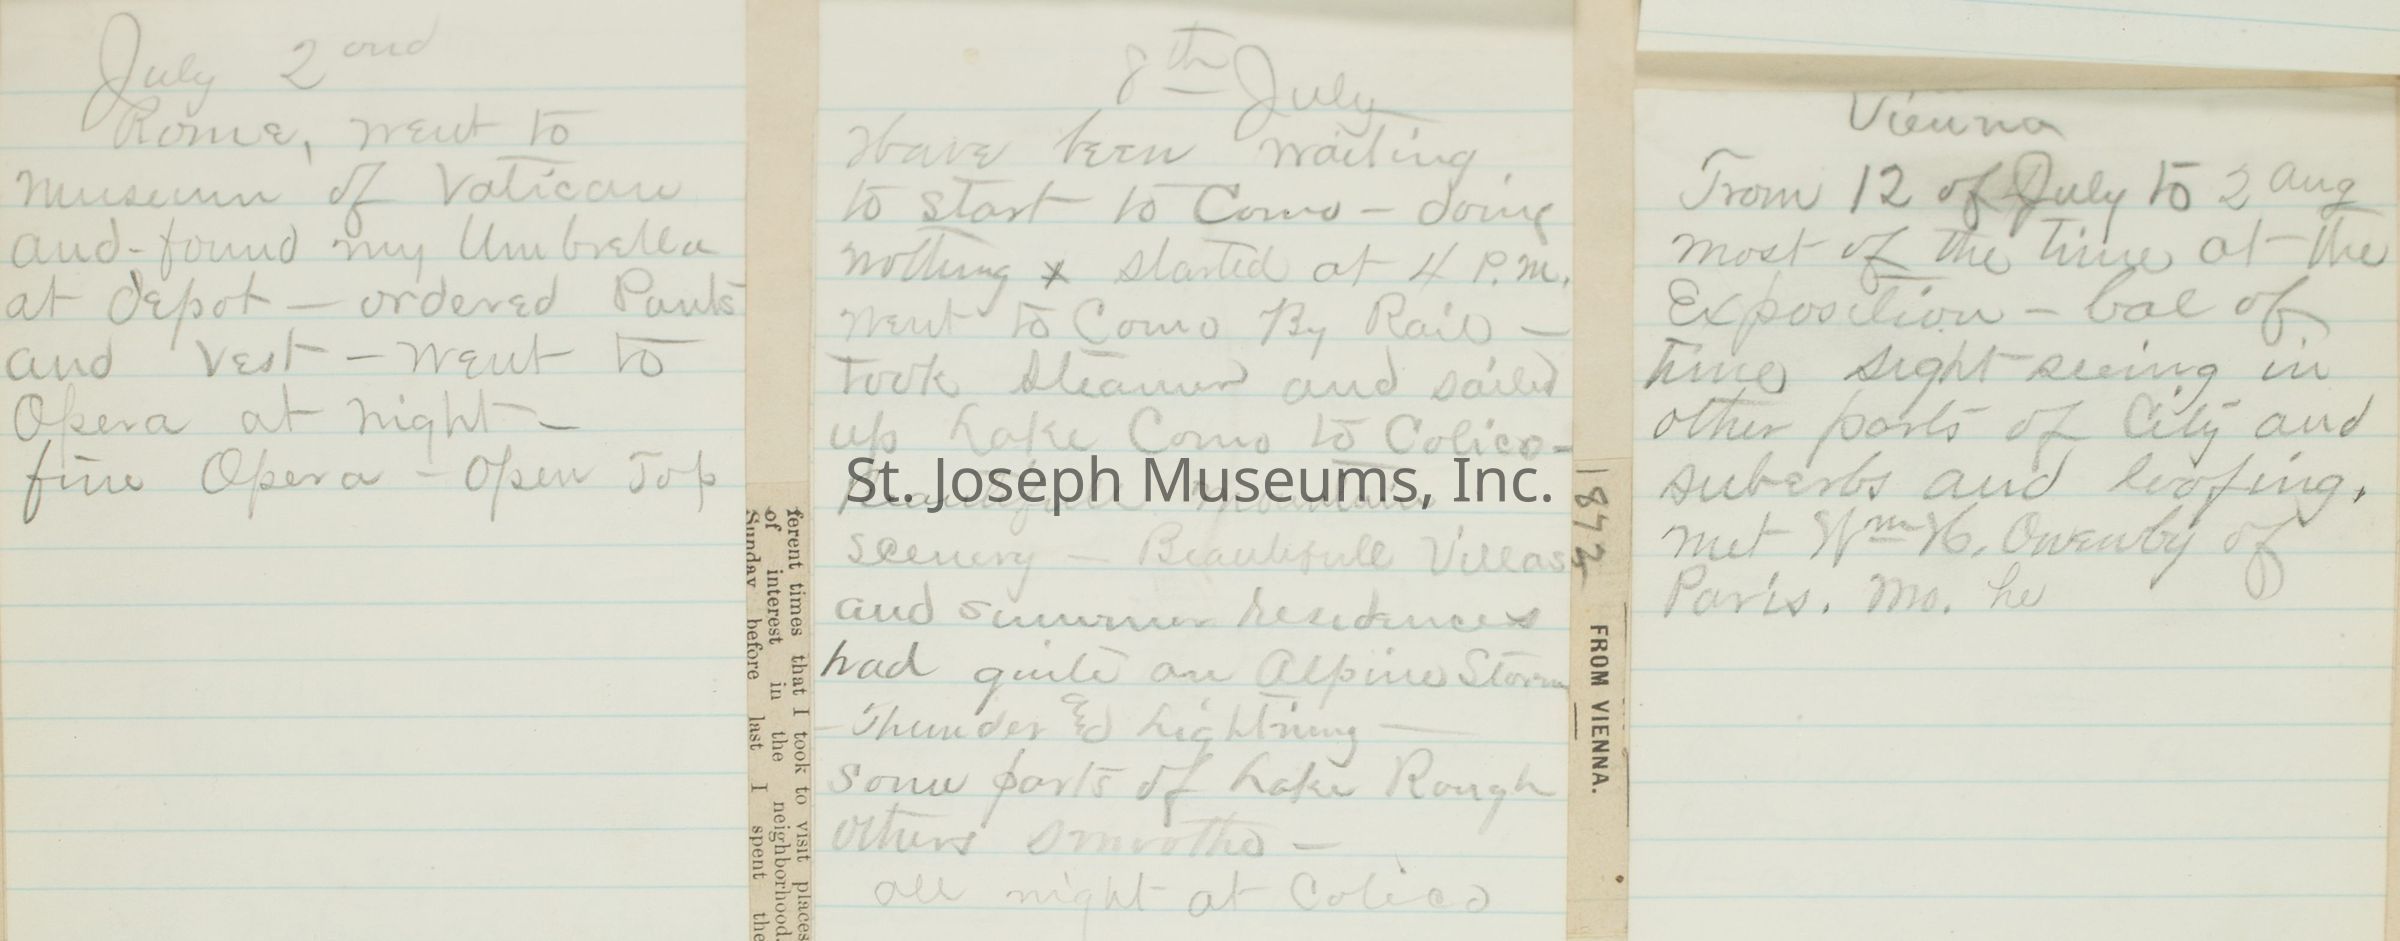 July 2nd
Rome, went to
museum of Vatican
and - found my Umbrella
at depot — ordered Pants
and vest — went to
Opera at night —
fine Opera — open Top
ferent times that I took to visit places
of interest in the neighborhood.
Sunday before last I spent the
8th July
Have been waiting
to start to Como — doing
nothing x started at 4 P.M.
went to Como By Rail —
Took Steamer and sailed
up Lake Como to Colico —
Beautifull Mountain
scenery — Beautifull Villas
and summer residences
had quite an Alpine Storm
- Thunder & Lightning —
some parts of Lake Rough
others smoothe —
all night at Colico
St. Joseph Museums, Inc.
1873
FROM VIENNA.
Vienna
From 12 of July to 2 Aug
most of the time at the
Exposition — bal of
time sight seeing in
other parts of City and
suberbs and loofing.
met Wm H. Owenby of
Paris. Mo. he